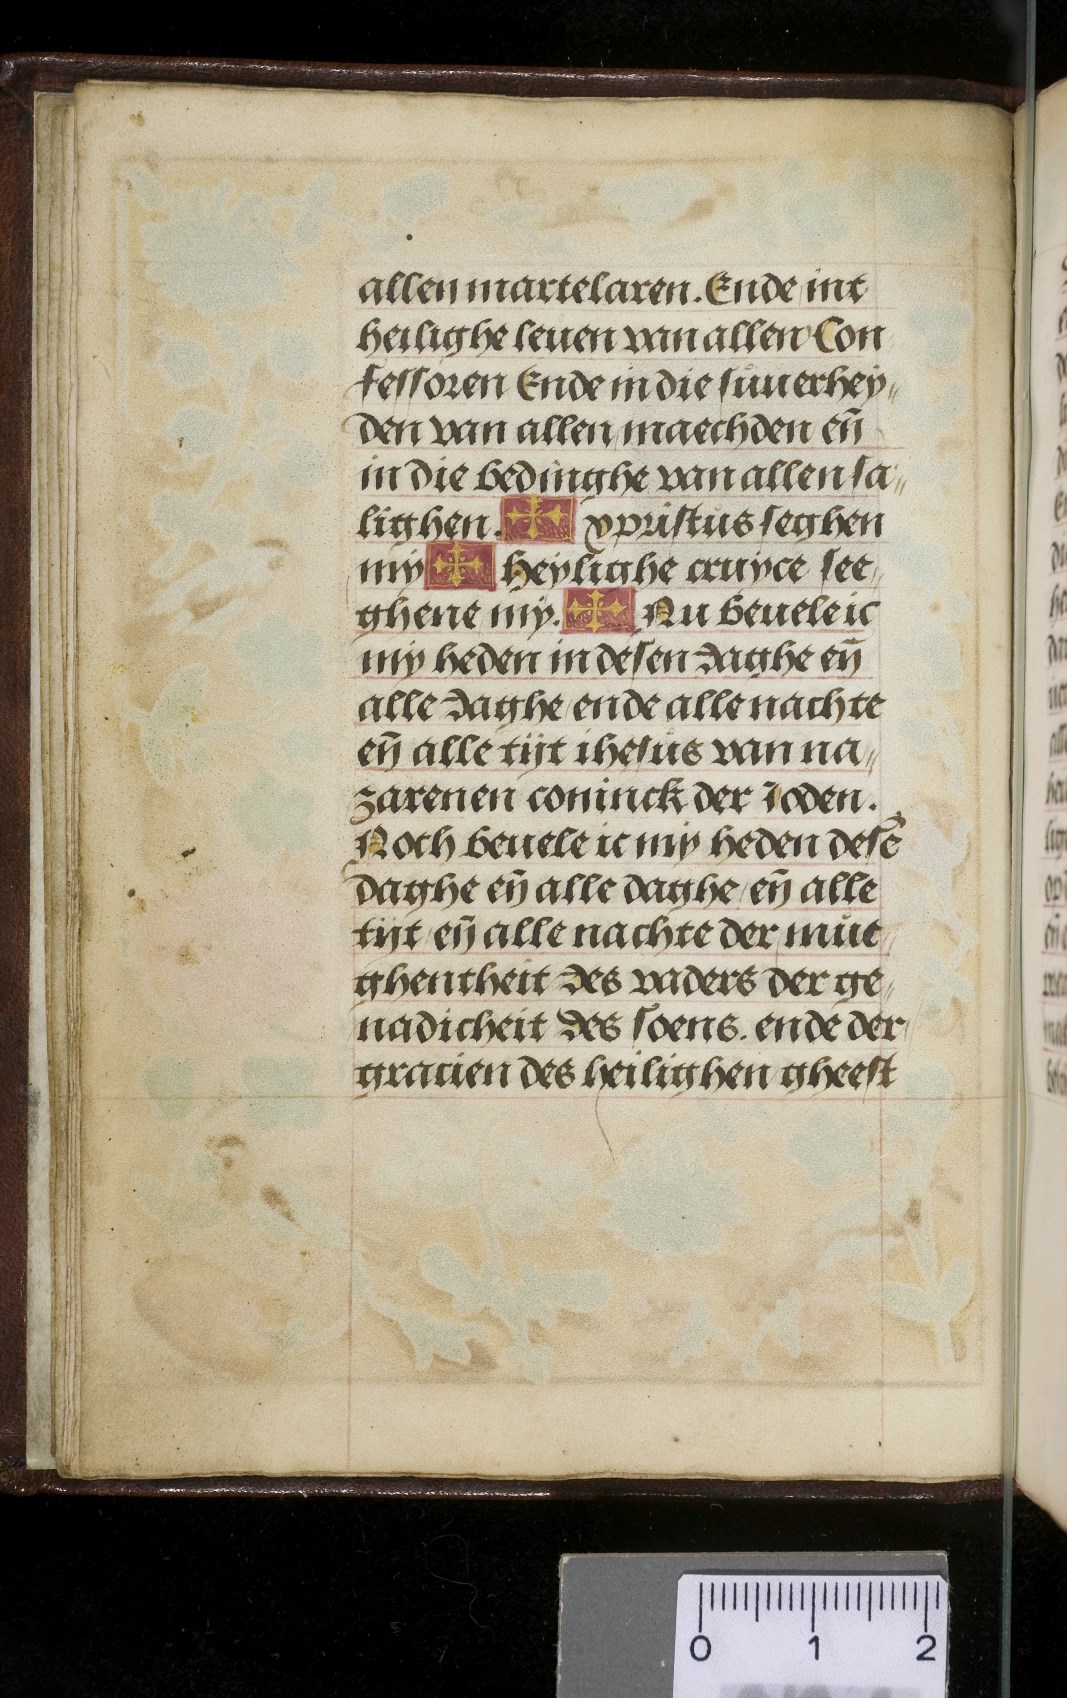 allen martelaren. Ende int
heilighe leuen van allen Con
fessoren Ende in die suuerhey〃
den van allen maechden eñ
in die bedinghe van allen sa〃
lighen. ✠ xpristus seghen
my ✠ heylighe cruyce see
ghene my. ✠ Nu beuele ic
my heden in desen daghe eñ
alle daghe ende alle nachte
eñ alle tijt ihesus van na〃
zarenen coninck der Joden.
Noch beuele ic my heden desē
daghe eñ alle daghe eñ alle
tijt eñ alle nachte der mue〃
ghentheit des vaders der ge〃
nadicheit des soens. ende der
gracien des heilighen gheest
0 1 2